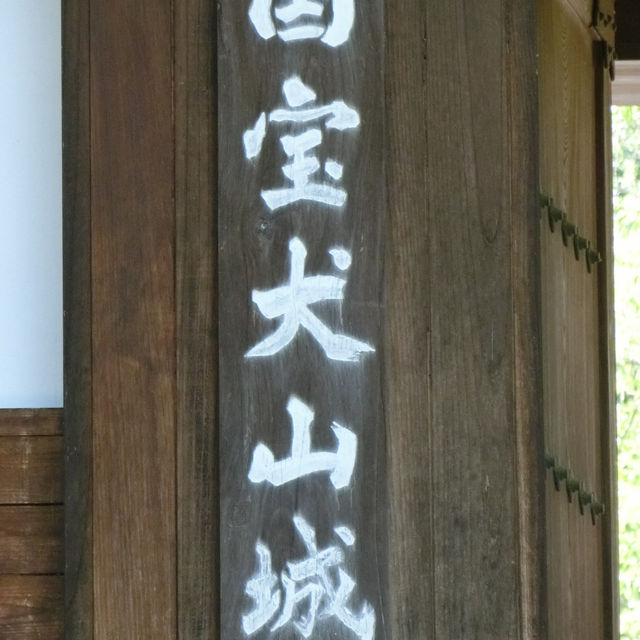 国宝犬山城